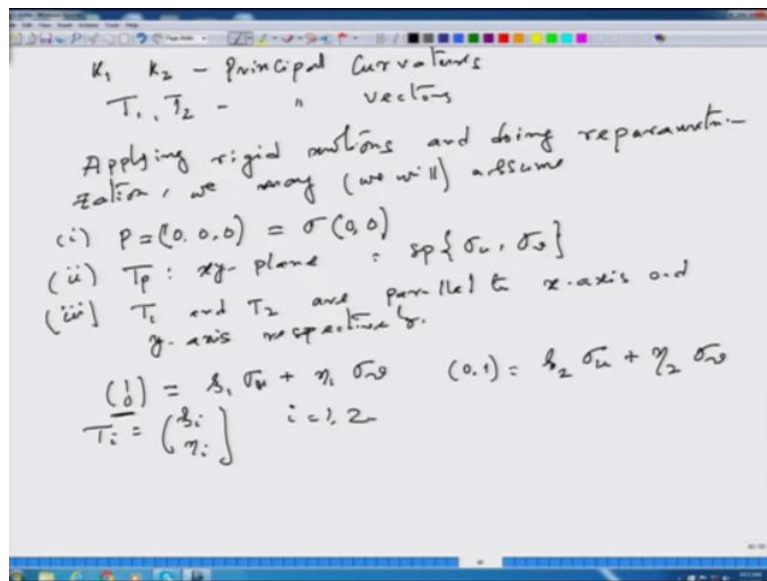 K₁ K₂ - Principal Curvatures
T₁, T₂ - " vectors
Applying rigid motions and doing reparametri-
zation, we may (we will) assume
(i) P = (0.0,0) = σ(0,0)
(ii) Tp : xy-plane = sp{σu, σv}
(iii) T₁ and T₂ are parallel to x-axis and
y-axis respectively.
(1 0) = ξ₁ σu + η₁ σv (0,1) = ξ₂ σu + η₂ σv
Ti = (ξi ηi) i=1,2